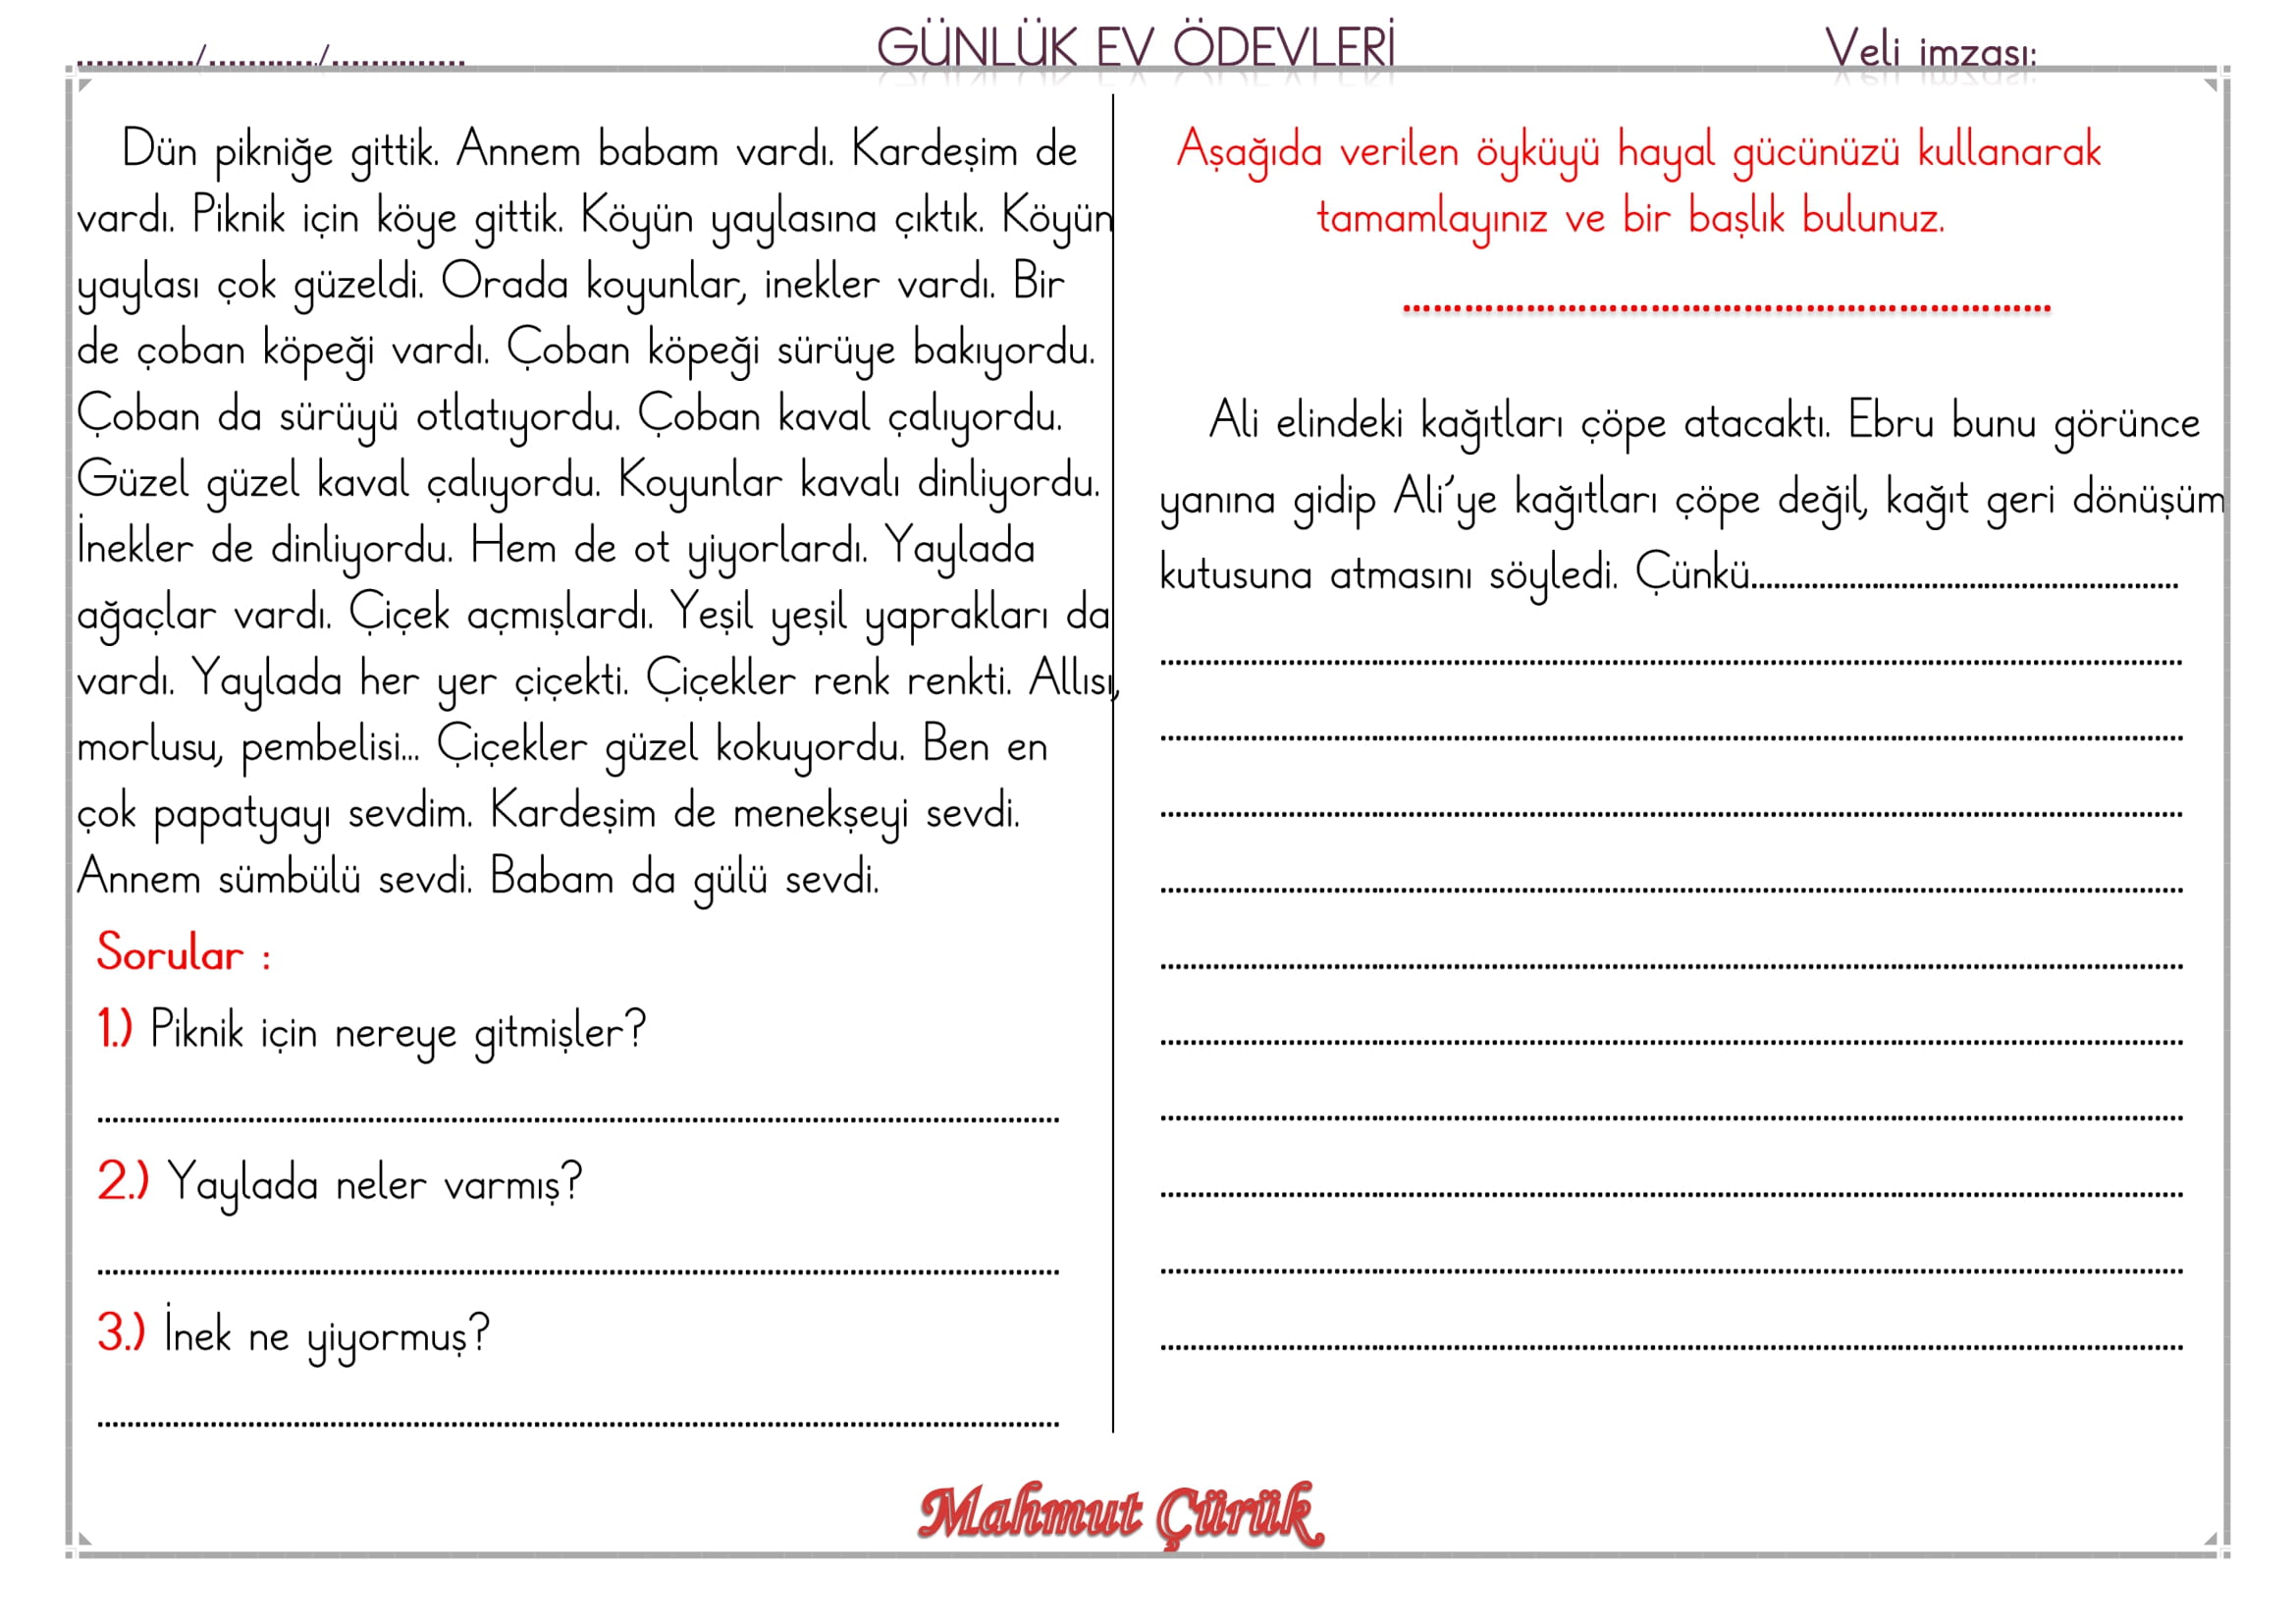 ............../............./................
GÜNLÜK EV ÖDEVLERİ
Veli imzası:
Dün pikniğe gittik. Annem babam vardı. Kardeşim de
vardı. Piknik için köye gittik. Köyün yaylasına çıktık. Köyün
yaylası çok güzeldi. Orada koyunlar, inekler vardı. Bir
de çoban köpeği vardı. Çoban köpeği sürüye bakıyordu.
Çoban da sürüyü otlatıyordu. Çoban kaval çalıyordu.
Güzel güzel kaval çalıyordu. Koyunlar kavalı dinliyordu.
İnekler de dinliyordu. Hem de ot yiyorlardı. Yaylada
ağaçlar vardı. Çiçek açmışlardı. Yeşil yeşil yaprakları da
vardı. Yaylada her yer çiçekti. Çiçekler renk renkti. Allısı,
morlusu, pembelisi... Çiçekler güzel kokuyordu. Ben en
çok papatyayı sevdim. Kardeşim de menekşeyi sevdi.
Annem sümbülü sevdi. Babam da gülü sevdi.
Sorular :
1.) Piknik için nereye gitmişler?
2.) Yaylada neler varmış?
3.) İnek ne yiyormuş?
Aşağıda verilen öyküyü hayal gücünüzü kullanarak
tamamlayınız ve bir başlık bulunuz.
Ali elindeki kağıtları çöpe atacaktı. Ebru bunu görünce
yanına gidip Ali’ye kağıtları çöpe değil, kağıt geri dönüşüm
kutusuna atmasını söyledi. Çünkü........................................................
Mahmut Çürük